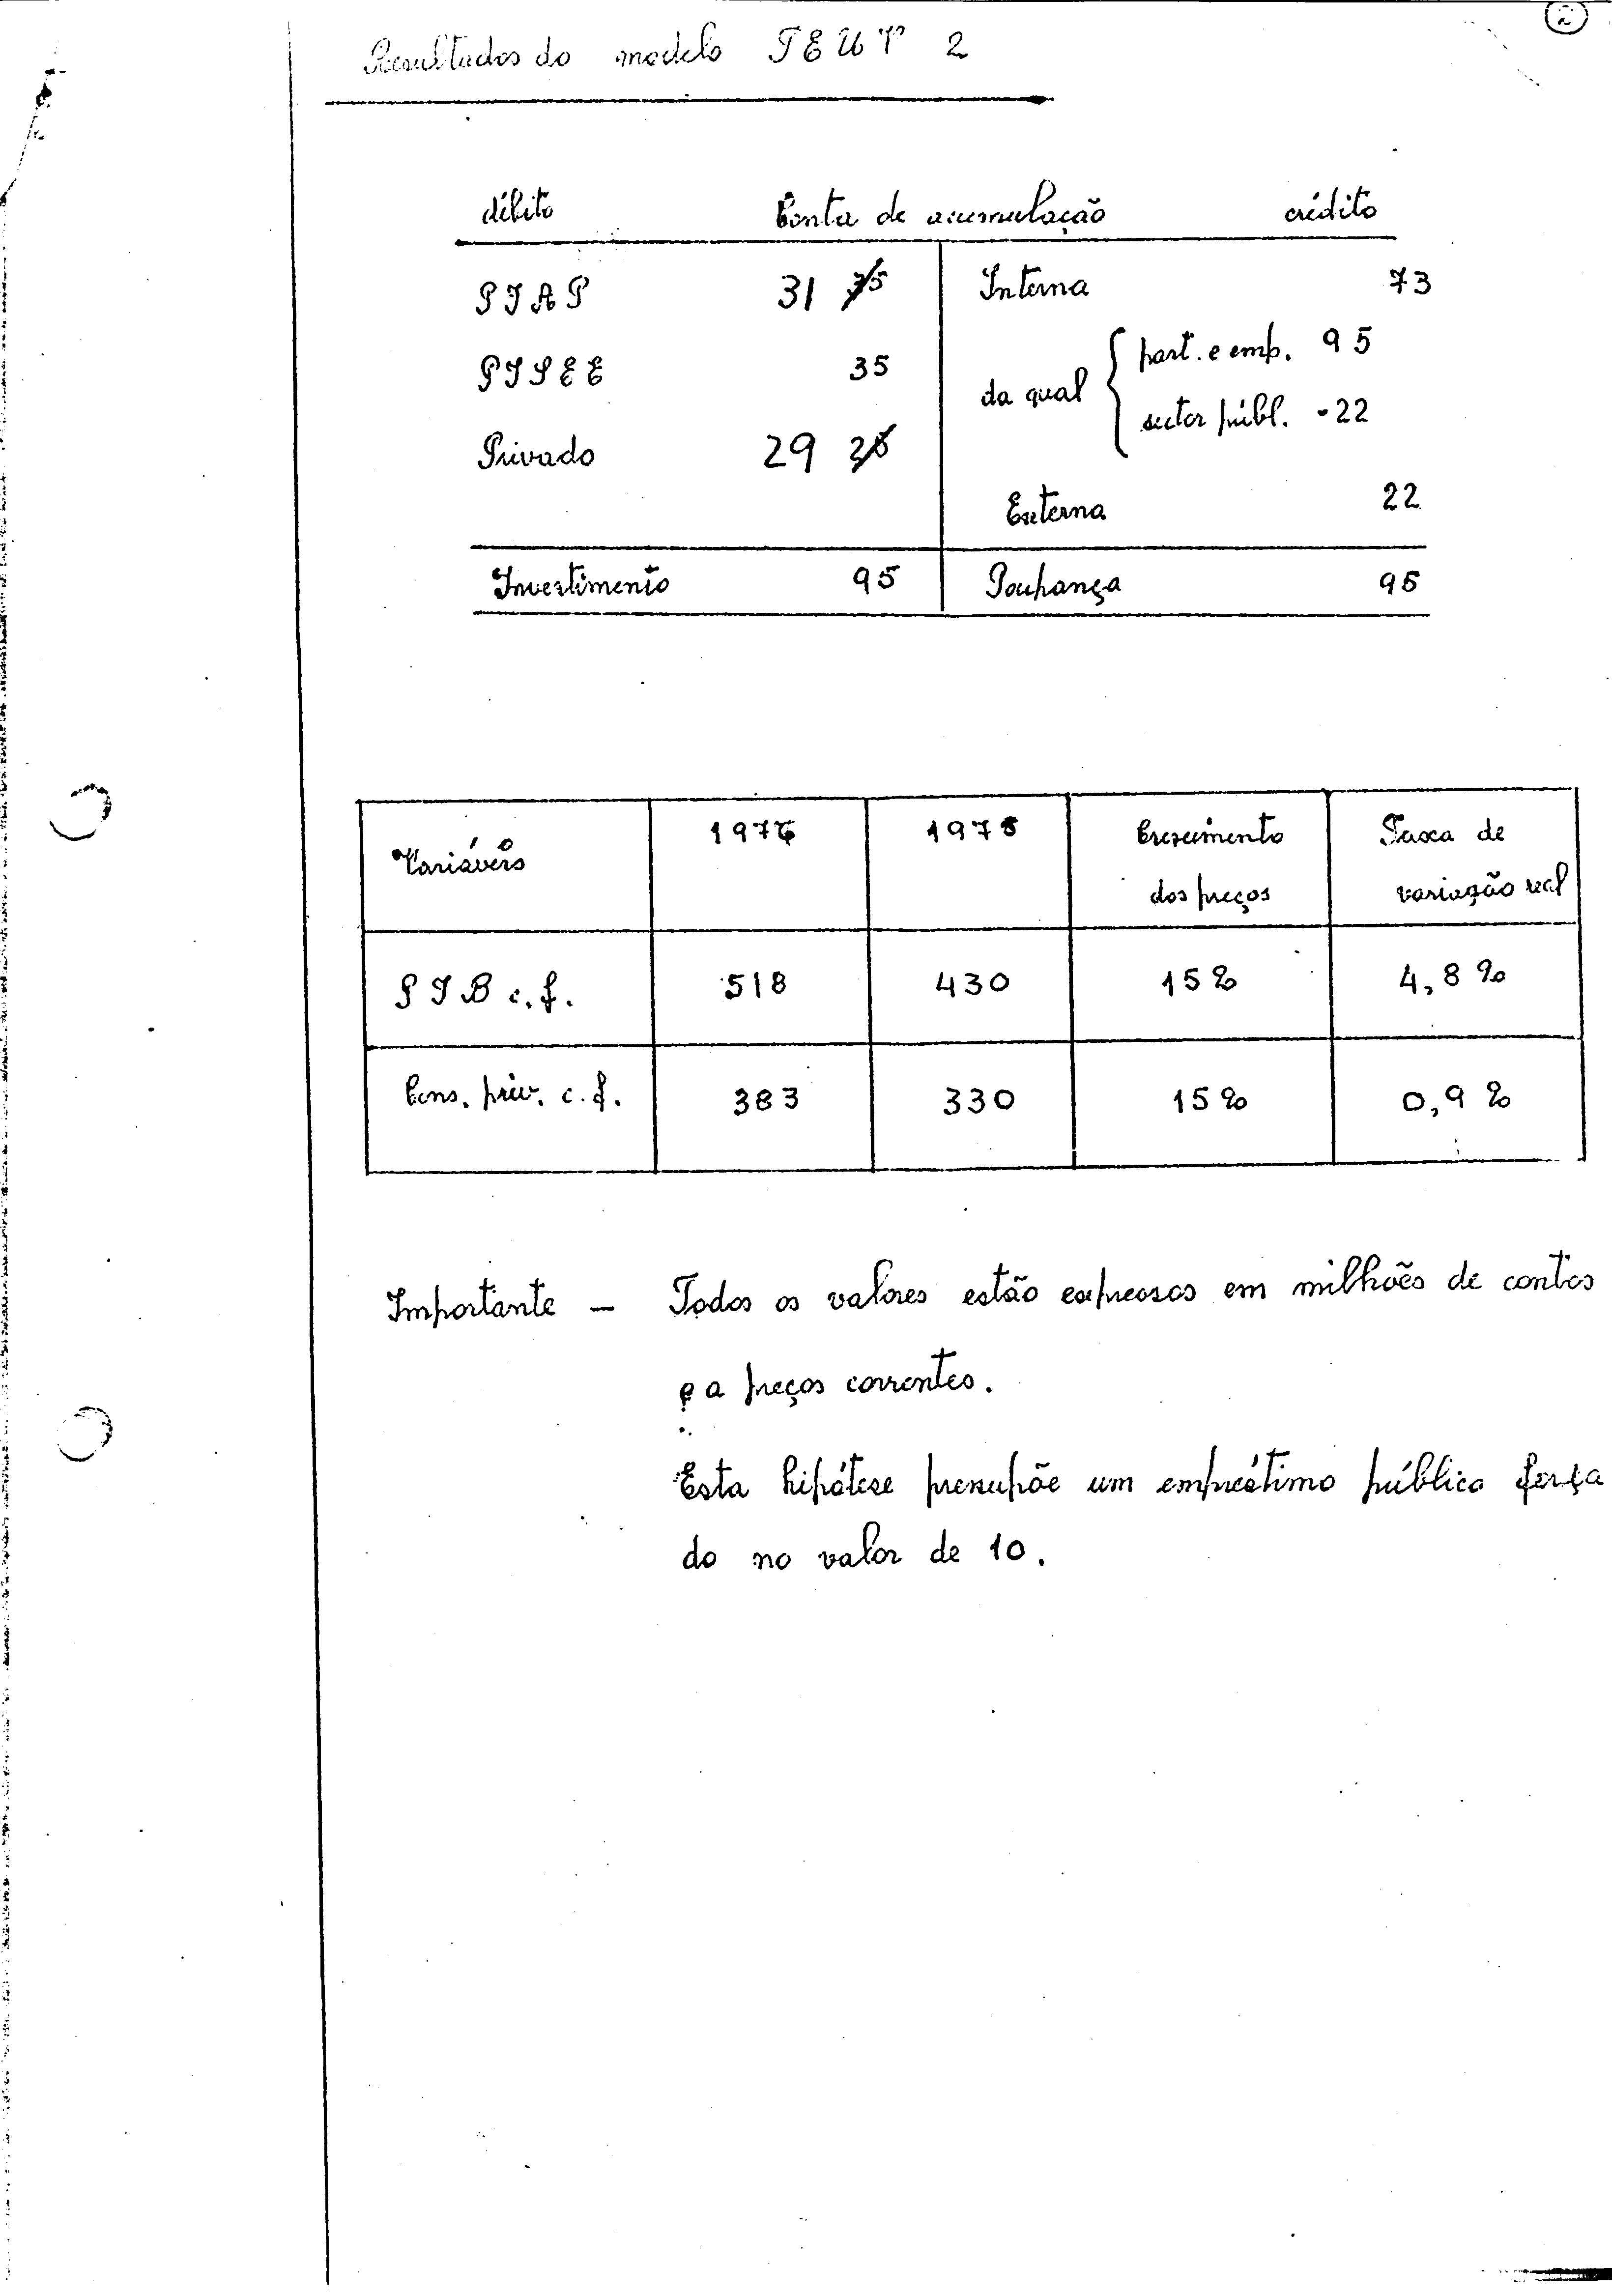 2
Resultados do modelo TEUT 2
débito Conta de acumulação crédito
PIAP 31 Interna 73
part. e emp. 95
PISEE 35
da qual
sector públ. -22
Privado 29
Externa 22
Investimento 95 Poupança 95
Variáveis 1976 1975 Crescimento Taxa de
dos preços variação real
PIB c.f. 518 430 15% 4,8%
Cons. priv. c.f. 383 330 15% 0,9%
Importante — Todos os valores estão expressos em milhões de contos
e a preços correntes.
Esta hipótese pressupõe um empréstimo público força
do no valor de 10.